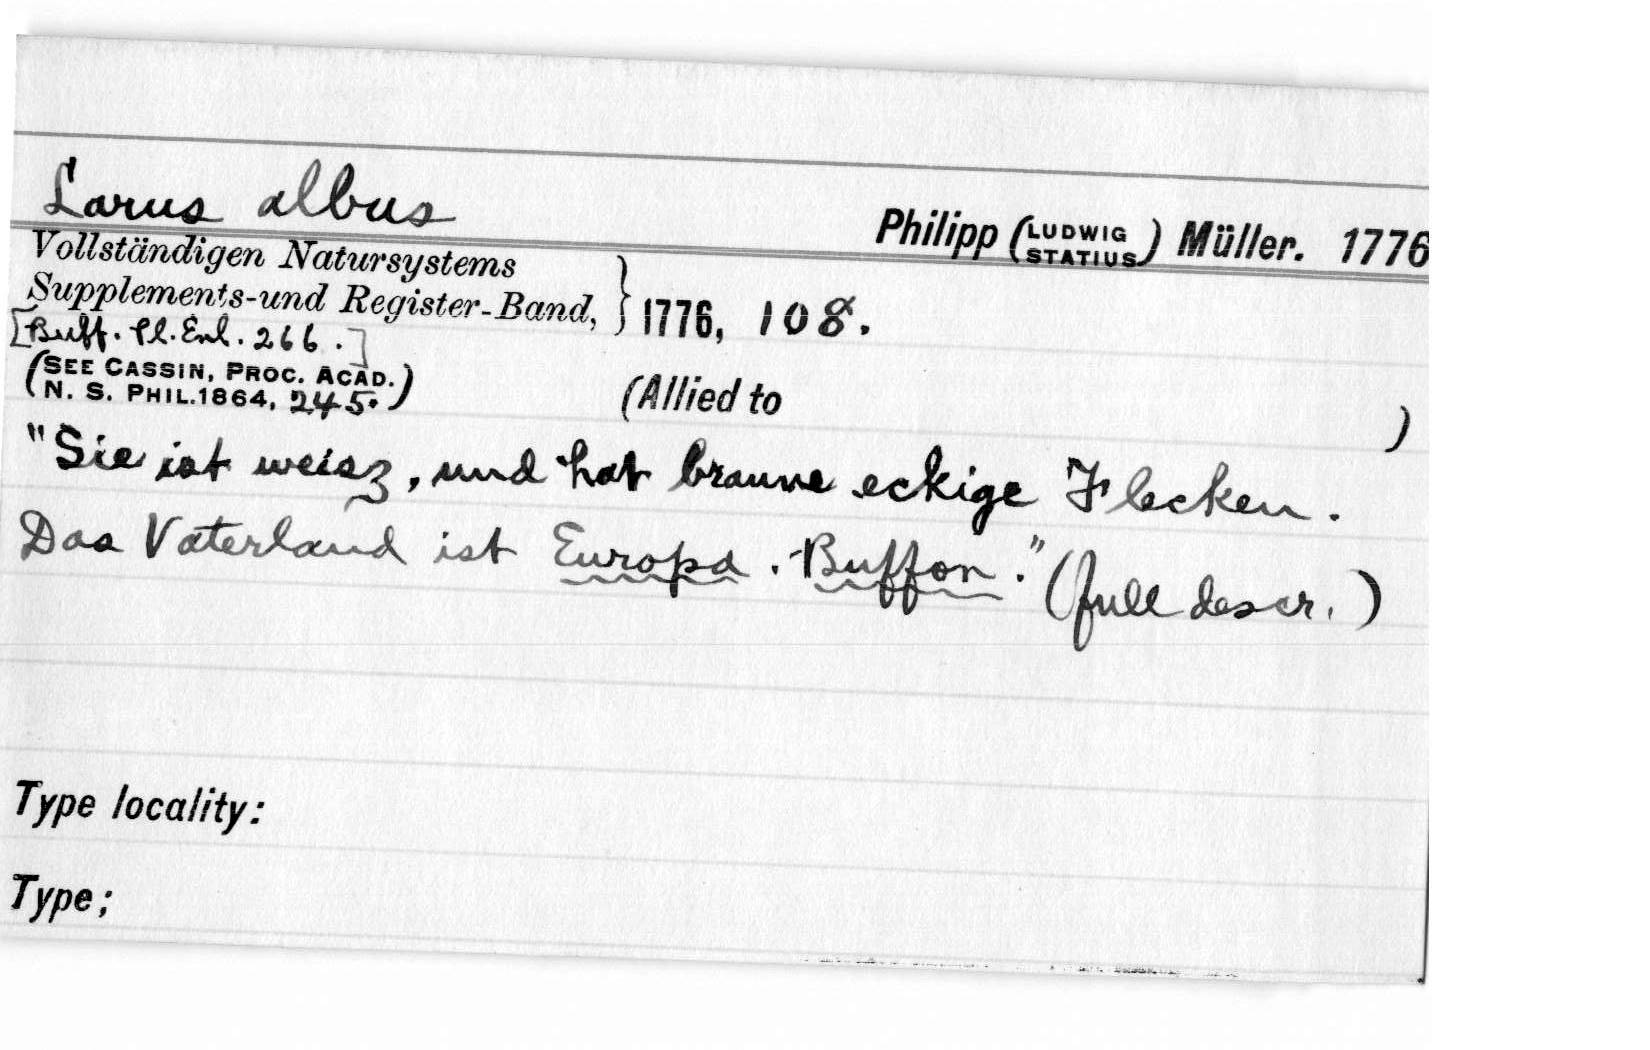 Larus albus
Philipp (LUDWIG STATIUS) Müller. 1776
Vollständigen Natursystems
Supplements-und Register-Band, } 1776, 108.
[Buff. Pl. Enl. 266.]
(SEE CASSIN, PROC. ACAD.
N. S. PHIL.1864, 245.)
(Allied to )
"Sie ist weisz, und hat braune eckige Flecken.
Das Vaterland ist Europa. Buffon." (full descr.)
Type locality:
Type;